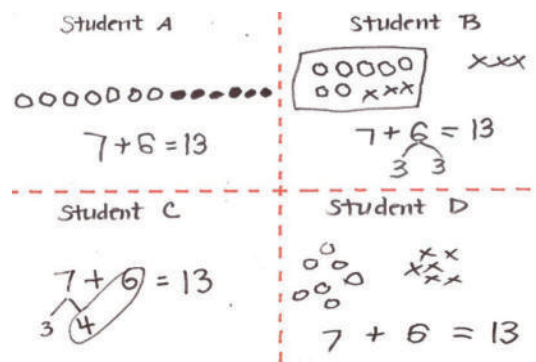 Student A
7 + 6 = 13
Student B
xxx
xxx
7 + 6 = 13
3 3
Student C
7 + 6 = 13
3 4
Student D
x x
x x x
x x
7 + 6 = 13